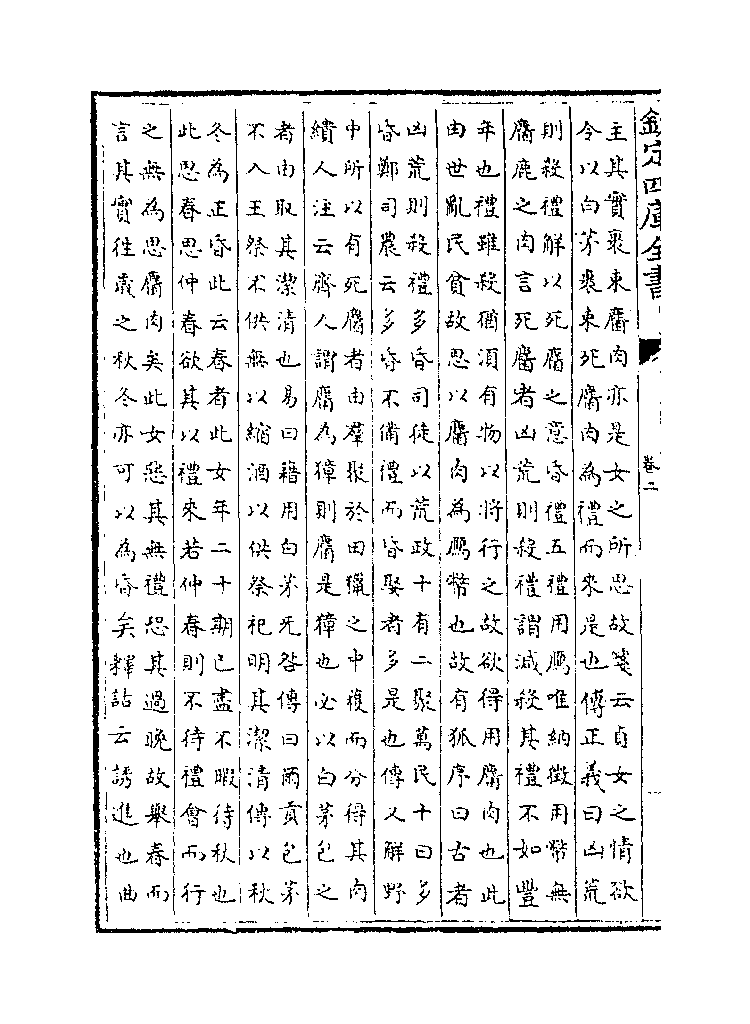 欽定四庫全書
卷二
主其實裹束麕肉亦是女之所思故箋云貞女之情欲
令以白茅裹束死麕肉為禮而來是也傳正義曰凶荒
則殺禮解以死麕之意昏禮五禮用鴈唯納徵用幣無
麕鹿之肉言死麕者凶荒則殺禮謂減殺其禮不如豐
年也禮雖殺猶須有物以將行之故欲得用麕肉也此
由世亂民貧故思以麕肉為鴈幣也故有狐序曰古者
凶荒則殺禮多昏司徒以荒政十有二聚萬民十曰多
昏鄭司農云多昏不備禮而昏娶者多是也傳又解野
中所以有死麕者由羣聚於田獵之中獲而分得其肉
繢人注云齊人謂麕為獐則麕是獐也必以白茅包之
者由取其潔清也易曰藉用白茅无咎傳曰爾貢包茅
不入王祭不供無以縮酒以供祭祀明其潔清傳以秋
冬為正昏此云春者此女年二十期已盡不暇待秋也
此思春思仲春欲其以禮來若仲春則不待禮會而行
之無為思麕肉矣此女惡其無禮恐其過晚故舉春而
言其實往歲之秋冬亦可以為昏矣釋詁云誘進也曲